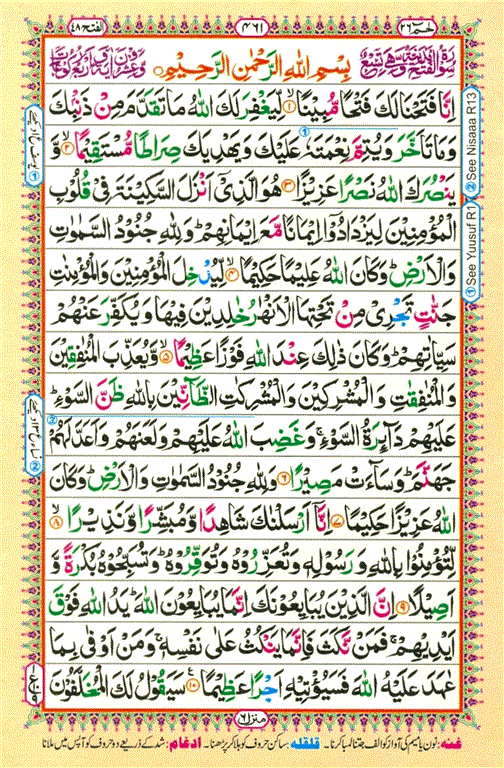 حٰمٓ ٢٦
٤٦١
الفتح ٤٨
بِسْمِ اللهِ الرَّحْمٰنِ الرَّحِيْمِ
اِنَّا فَتَحْنَا لَكَ فَتْحًا مُّبِيْنًا ۙ﴿١﴾ لِّيَغْفِرَ لَكَ اللهُ مَا تَقَدَّمَ مِنْ ذَنْۢبِكَ
وَمَا تَاَخَّرَ وَيُتِمَّ نِعْمَتَهٗ عَلَيْكَ وَيَهْدِيَكَ صِرَاطًا مُّسْتَقِيْمًا ۙ﴿٢﴾ وَّ
يَنْصُرَكَ اللهُ نَصْرًا عَزِيْزًا ﴿٣﴾ هُوَ الَّذِيْۤ اَنْزَلَ السَّكِيْنَةَ فِيْ قُلُوْبِ
الْمُؤْمِنِيْنَ لِيَزْدَادُوْۤا اِيْمَانًا مَّعَ اِيْمَانِهِمْ ؕ وَلِلّٰهِ جُنُوْدُ السَّمٰوٰتِ
وَالْاَرْضِ ؕ وَكَانَ اللهُ عَلِيْمًا حَكِيْمًا ۙ﴿٤﴾ لِّيُدْخِلَ الْمُؤْمِنِيْنَ وَالْمُؤْمِنٰتِ
جَنّٰتٍ تَجْرِيْ مِنْ تَحْتِهَا الْاَنْهٰرُ خٰلِدِيْنَ فِيْهَا وَيُكَفِّرَ عَنْهُمْ
سَيِّاٰتِهِمْ ؕ وَكَانَ ذٰلِكَ عِنْدَ اللهِ فَوْزًا عَظِيْمًا ۙ﴿٥﴾ وَّيُعَذِّبَ الْمُنٰفِقِيْنَ
وَالْمُنٰفِقٰتِ وَالْمُشْرِكِيْنَ وَالْمُشْرِكٰتِ الظَّآنِّيْنَ بِاللهِ ظَنَّ السَّوْءِ ؕ
عَلَيْهِمْ دَآئِرَةُ السَّوْءِ ۚ وَغَضِبَ اللهُ عَلَيْهِمْ وَلَعَنَهُمْ وَاَعَدَّ لَهُمْ
جَهَنَّمَ ؕ وَسَآءَتْ مَصِيْرًا ﴿٦﴾ وَلِلّٰهِ جُنُوْدُ السَّمٰوٰتِ وَالْاَرْضِ ؕ وَكَانَ
اللهُ عَزِيْزًا حَكِيْمًا ﴿٧﴾ اِنَّاۤ اَرْسَلْنٰكَ شَاهِدًا وَّمُبَشِّرًا وَّنَذِيْرًا ۙ﴿٨﴾
لِّتُؤْمِنُوْا بِاللهِ وَرَسُوْلِهٖ وَتُعَزِّرُوْهُ وَتُوَقِّرُوْهُ ؕ وَتُسَبِّحُوْهُ بُكْرَةً وَّ
اَصِيْلًا ﴿٩﴾ اِنَّ الَّذِيْنَ يُبَايِعُوْنَكَ اِنَّمَا يُبَايِعُوْنَ اللهَ ؕ يَدُ اللهِ فَوْقَ
اَيْدِيْهِمْ ۚ فَمَنْ نَّكَثَ فَاِنَّمَا يَنْكُثُ عَلٰى نَفْسِهٖ ۚ وَمَنْ اَوْفٰى بِمَا
عٰهَدَ عَلَيْهُ اللهَ فَسَيُؤْتِيْهِ اَجْرًا عَظِيْمًا ﴿١٠﴾ سَيَقُوْلُ لَكَ الْمُخَلَّفُوْنَ
② See Nisaaa R13
① See Yuusuf R1
منزل ٦
غنه: نون یا میم کی آواز کو الف جتنا لمبا کرنا۔ قلقلہ: ساکن حروف کو ہلا کر پڑھنا۔ ادغام: شد کے ذریعے دو حروف کو آپس میں ملانا